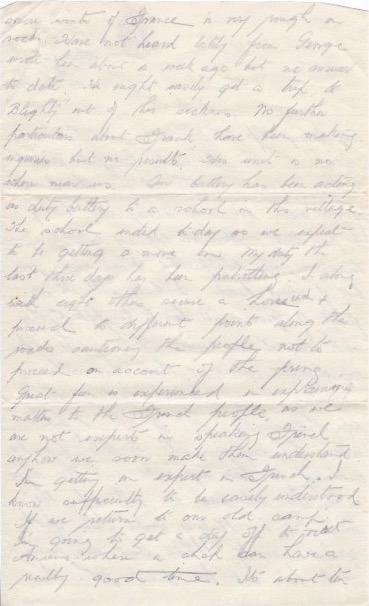 of France is very rough on
socks. Have not heard lately from George
wrote him about a week ago but no answer
to date. He might easily get a trip to
Blighty out of his sickness. No further
particulars about Frank have been making
inquiries but no results. His unit is no
where near us. Our battery has been acting
as duty battery to a school in this village
The school ended to-day so we expect
to be getting a move on. My duty the
last three days has been patrolling. I along
with eight others secure a horse &
proceed to different points along the
roads cautioning the people not to
proceed on account of the firing
Great fun is experienced in explaining
matters to the French people as we
are not expert in speaking French
anyhow we soon make them understand.
I'm getting an expert in French. I
know sufficiently to be easily understood
If we return to our old camp
I'm going to get a day off to visit
Amiens where a chap can have a
really good time. It's about ten